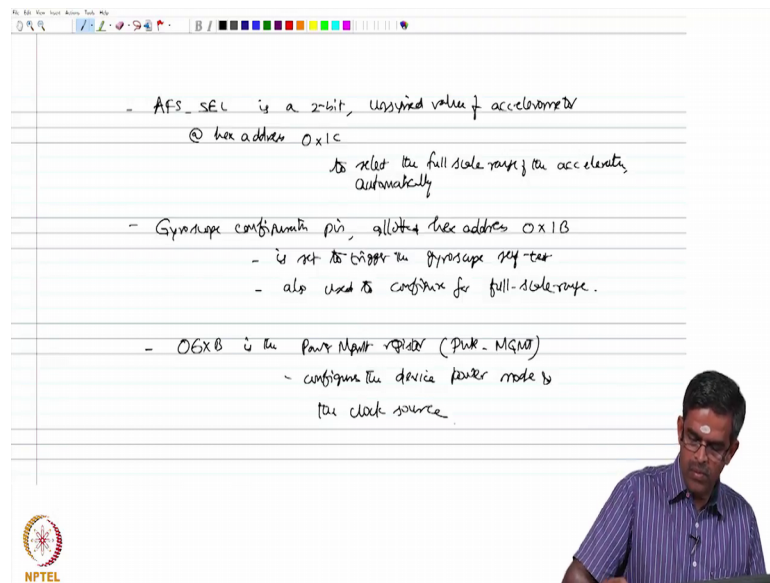 File Edit View Insert Actions Tools Help
B I
- AFS_SEL is a 2-bit, unsigned value of accelerometer
@ hex address 0x1C
to select the full scale range of the accelerating
automatically
- Gyroscope configuration pin, allotted hex address 0x1B
- is set to trigger the gyroscope self-test
- also used to configure for full-scale-range.
- 06XB is the Power Mgmt register (PWR-MGMT)
- configures the device power mode &
the clock source.
NPTEL